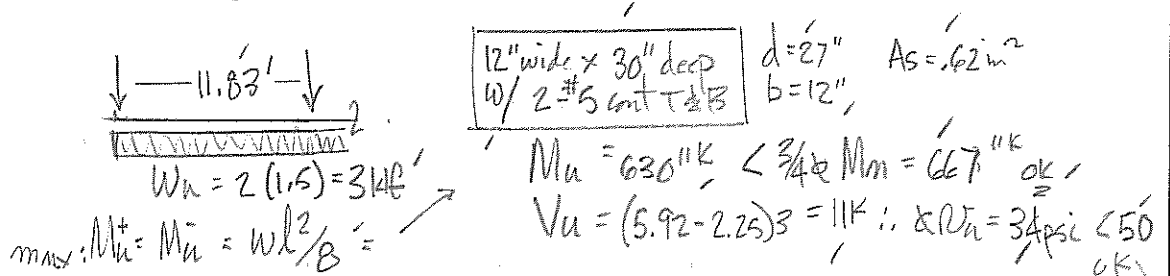 11.83'
Wu = 2(1.5) = 3 klf
max: Mu+ = Mu- = wl²/8 =
12" wide x 30" deep
w/ 2-#5 cont T&B
d = 27"
b = 12"
As = .62 in²
Mu = 630"K < 3/4 Mn = 667"K ok
Vu = (5.92 - 2.25)3 = 11K ∴ = 34psi < 50
ok